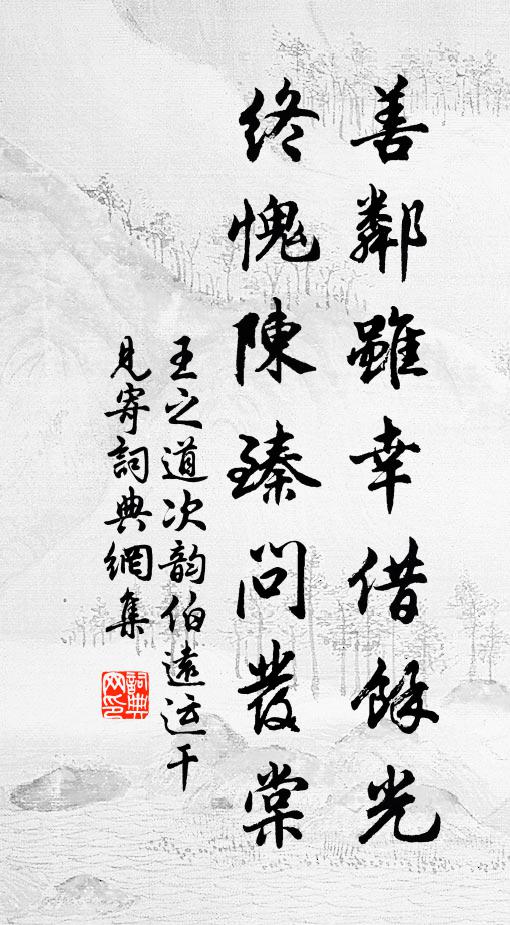 善鄰雖幸借餘光
終愧陳臻問發棠
王之道次韵伯遠运干
見寄詞典網集
詞典网印